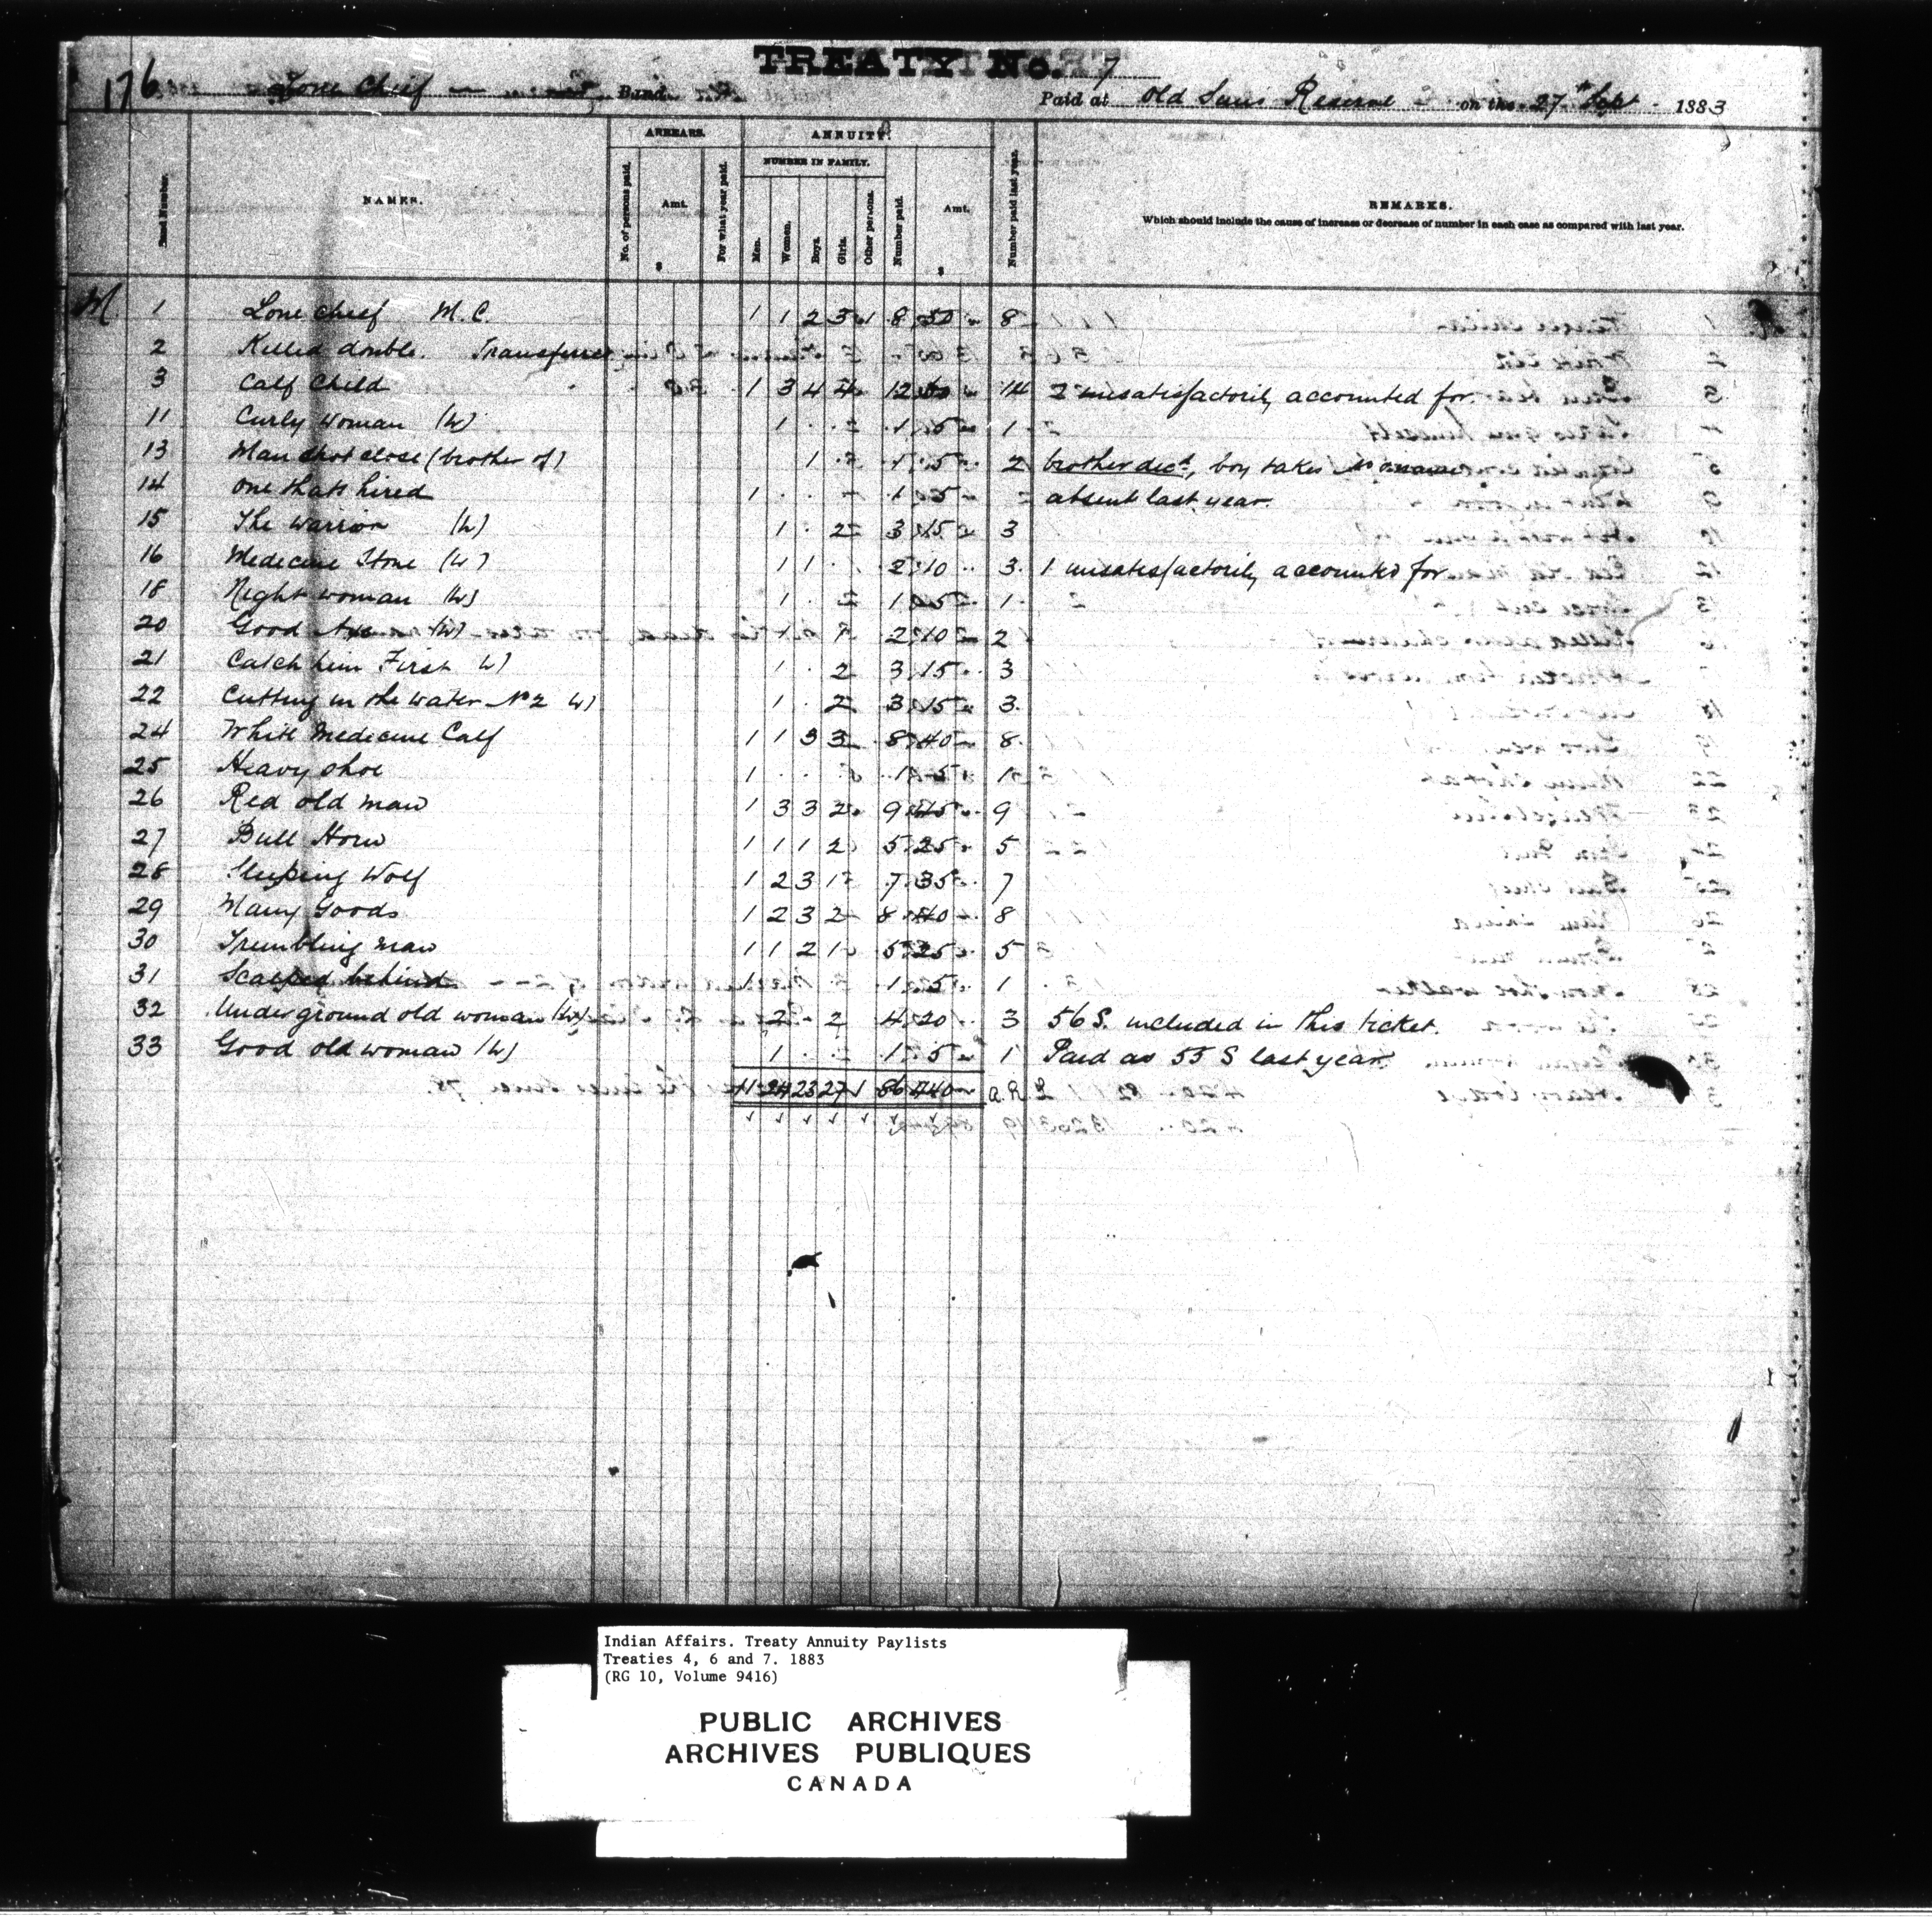 TREATY No. 7
176 Lone Chief — Band Paid at Old Suns Reserve on the 27th Sept 1883
Band Number. NAMES. ARREARS. No. of persons paid. Amt. $ For what year paid. ANNUITY. NUMBER IN FAMILY. Men. Women. Boys. Girls. Other persons. Number paid. Amt. $ Number paid last year. REMARKS.
Which should include the cause of increase or decrease of number in each case as compared with last year.
M. 1 Lone chief M.C. 1 1 2 3 1 8 50 8
2 Killed double. Transferred
3 Calf Child 1 3 4 4 12 60 14 2 unsatisfactorily accounted for
11 Curly Woman (W) 1 1 5 1
13 Man shot close (brother of) 1 1 5 2 brother decd, boy takes
14 One thats hired 1 1 5 absent last year.
15 The Warrior (W) 1 2 3 15 3
16 Medecine Stone (W) 1 1 2 10 3 1 unsatisfactorily accounted for
18 Night woman (W) 1 1 5 1
20 Good (W) 1 1 2 10 2
21 Catch him First W) 1 2 3 15 3
22 Cutting in the water No 2 W) 1 2 3 15 3
24 White Medecine Calf 1 1 3 3 8 40 8
25 Heavy Shoe 1 1 5 1
26 Red old man 1 3 3 2 9 45 9
27 Bull Horn 1 1 1 2 5 25 5
28 Sleeping Wolf 1 2 3 1 7 35 7
29 Many Goods 1 2 3 2 8 40 8
30 Trembling man 1 1 2 1 5 25 5
31 Scalped behind 1 1 5 1
32 Underground old woman (W) 2 2 4 20 3 56 S. included in this ticket.
33 Good old woman (W) 1 1 5 1 Paid as 55 S last year
11 24 23 27 1 86 440
Indian Affairs. Treaty Annuity Paylists
Treaties 4, 6 and 7. 1883
(RG 10, Volume 9416)
PUBLIC ARCHIVES
ARCHIVES PUBLIQUES
CANADA